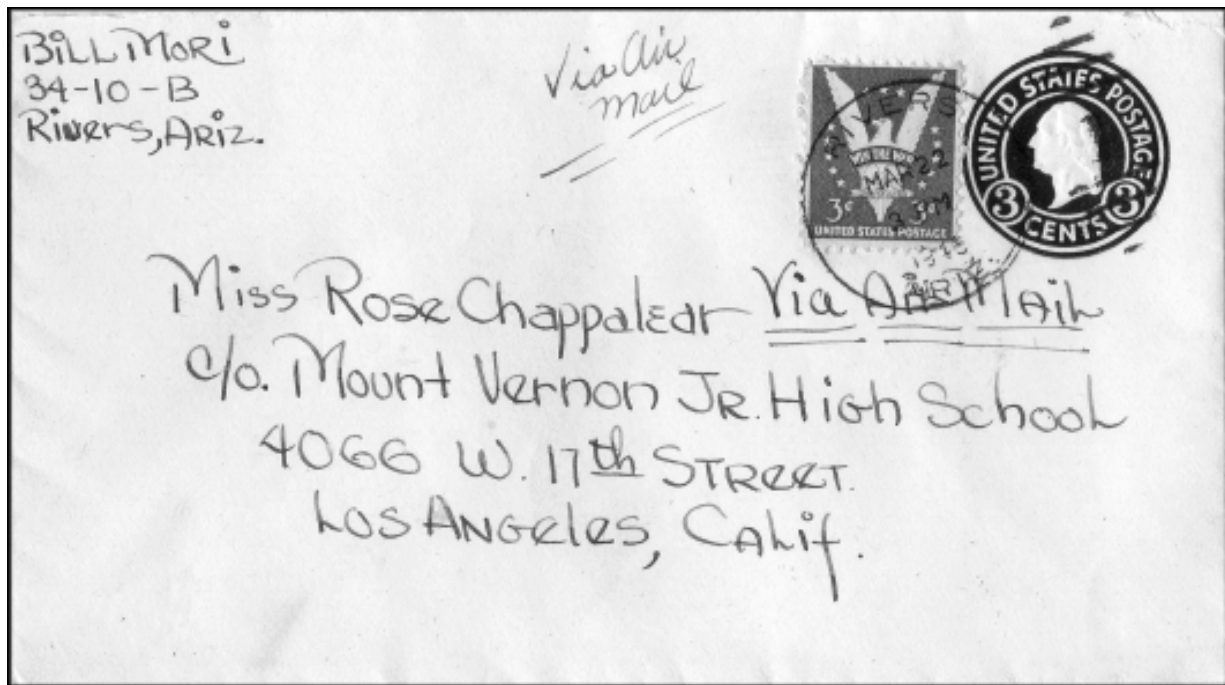 BiLL MORi
34-10-B
Rivers, ARiZ.
Via Air
mail
RIVERS
MAR 22
3 PM
ARIZ.
WIN THE WAR
3¢ 3¢
UNITED STATES POSTAGE
UNITED STATES POSTAGE
3 3
CENTS
Miss Rose Chappalear Via Air MAiL
c/o. Mount Vernon JR. High School
4066 W. 17th STREET.
Los ANGeles, CALif.